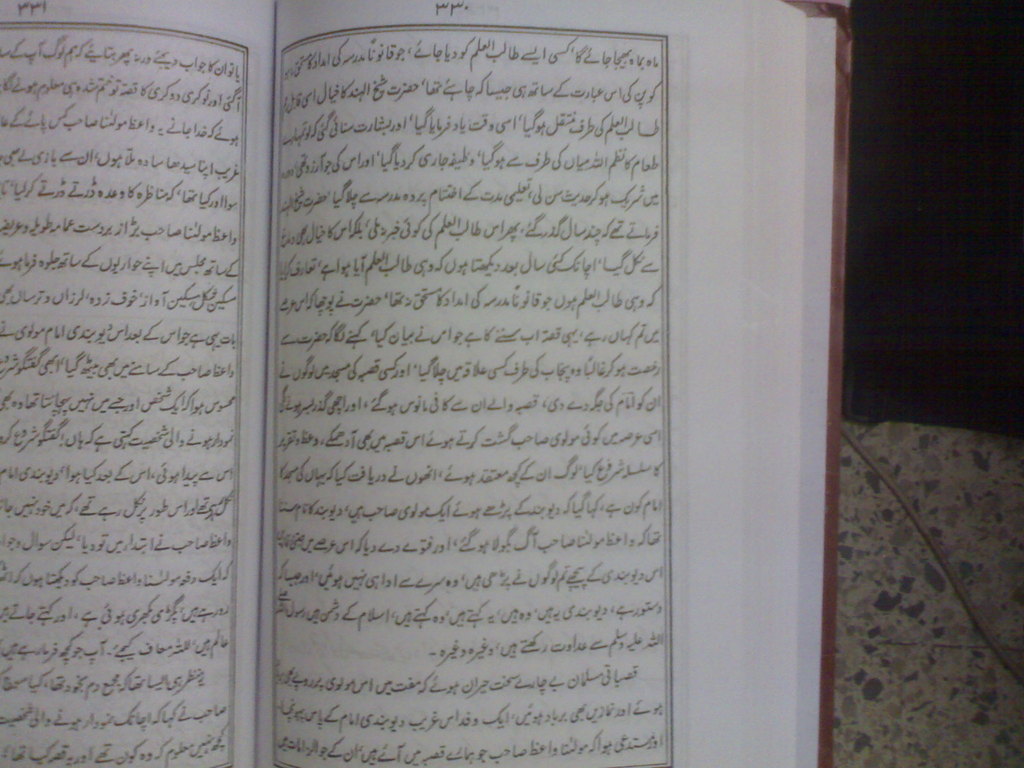 ۳۳۰
ماہ بماہ بھیجا جائے گا، کسی ایسے طالب العلم کو دیا جائے، جو قانوناً مدرسہ کی امداد کا مستحق نہ ہو
کوپن کی اس عبارت کے ساتھ ہی جیسا کہ چاہئے تھا، حضرت شیخ الہند کا خیال اسی قابل رحم
طالب العلم کی طرف منتقل ہوگیا، اسی وقت یاد فرمایا گیا، اور بشارت سنائی گئی کہ لو تمہارے
طعام کا نظم اللہ میاں کی طرف سے ہوگیا، وظیفہ جاری کردیا گیا، اور اس کی جو آرزو تھی دورہ
میں شریک ہوکر حدیث سن لی، تعلیمی مدت کے اختتام پر وہ مدرسہ سے چلا گیا، حضرت شیخ الہند
فرماتے تھے کہ چند سال گذر گئے، پھر اس طالب العلم کی کوئی خبر نہ ملی، بلکہ اس کا خیال بھی دماغ
سے نکل گیا، اچانک کئی سال بعد دیکھتا ہوں کہ وہی طالب العلم آیا ہوا ہے، تعارف کرایا
کہ وہی طالب العلم ہوں جو قانوناً مدرسہ کی امداد کا مستحق نہ تھا، حضرت نے پوچھا کہ اس عرصے
میں تم کہاں رہے، یہی قصہ اب سننے کا ہے جو اس نے بیان کیا، کہنے لگا کہ حضرت سے
رخصت ہوکر غالباً وہ پنجاب کی طرف کسی علاقہ میں چلا گیا، اور کسی قصبہ کی مسجد میں لوگوں نے
ان کو امام کی جگہ دے دی، قصبہ والے ان سے کافی مانوس ہوگئے، اور اچھی گذر بسر ہونے لگی
اسی عرصہ میں کوئی مولوی صاحب گشت کرتے ہوئے اس قصبہ میں بھی آدھمکے، وعظ و تقریر
کا سلسلہ شروع کیا، لوگ ان کے کچھ معتقد ہوئے، انھوں نے دریافت کیا کہ یہاں کی مسجد کا
امام کون ہے، کہا گیا کہ دیوبند کے پڑھے ہوئے ایک مولوی صاحب ہیں، دیوبند کا نام سننا
تھا کہ واعظ مولٰنا صاحب آگ بگولا ہوگئے، اور فتوے دے دیا کہ اس عرصے میں جتنی نمازیں
اس دیوبندی کے پیچھے تم لوگوں نے پڑھی ہیں، وہ سرے سے ادا ہی نہیں ہوئیں، اور جیسا کہ
دستور ہے، دیوبندی یہ ہیں، وہ ہیں، یہ کہتے ہیں، وہ کہتے ہیں، اسلام کے دشمن ہیں رسول اللہ صلی
اللہ علیہ وسلم سے عداوت رکھتے ہیں، وغیرہ وغیرہ۔
قصباتی مسلمان بے چارے سخت حیران ہوئے کہ مفت میں اس مولوی پر روپے بھی
ہوئے اور نمازیں بھی برباد ہوئیں، ایک وفد اس غریب دیوبندی امام کے پاس پہونچا
اور مستدعی ہوا کہ مولٰنا واعظ صاحب جو ہمارے قصبہ میں آئے ہیں، ان کے جو الزامات ہیں
۳۳۱
یا تو ان کا جواب دیجئے ورنہ پھر بتائیے کہ ہم لوگ آپ کے
گئی اور نوکری ووکری کا قصہ تو ختم شدہ ہی معلوم ہونے لگا
ہوئے کہ خدا جانے یہ واعظ مولٰنا صاحب کس پائے کے
غریب اپنا سیدھا سادہ ملا ہوں، ان سے بازی لے بھی
سوا اور کیا تھا، کہ مناظرہ کا وعدہ ڈرتے ڈرتے کرلیا،
واعظ مولٰنا صاحب بڑا زبردست عمامہ طویلہ و عریضہ
کے ساتھ مجلس میں اپنے حواریوں کے ساتھ جلوہ فرما ہوئے
مسکین شکل مسکین آواز، خوف زدہ، لرزاں و ترساں بھی
بات یہی ہے جو اس کے بعد اس دیوبندی امام مولوی نے
واعظ صاحب کے سامنے میں بھی بیٹھ گیا، ابھی گفتگو شروع
محسوس ہوا کہ ایک شخص اور جسے میں نہیں پہچانتا تھا وہ بھی
نمودار ہونے والی شخصیت کہتی ہے کہ ہاں! گفتگو شروع کرو
اس سے پیدا ہوئی، اس کے بعد کیا ہوا، دیوبندی امام
نکل رہے تھے اور اس طور پر نکل رہے تھے، کہ میں خود نہیں
واعظ صاحب نے ابتدا میں تو دیا، لیکن سوال و جواب
کہ ایک دفعہ مولٰنا واعظ صاحب کو دیکھتا ہوں کہ
رو رہے ہیں، پگڑی بکھری ہوئی ہے، اور کہتے جاتے ہیں
عالم ہیں، للہ معاف کیجئے۔ آپ جو کچھ فرما رہے ہیں
یہ منظر ہی ایسا تھا کہ مجمع دم بخود تھا، کیا
صاحب نے کہا کہ اچانک نمودار ہونے والی شخصیت
کچھ نہیں معلوم کہ وہ کون تھے اور یہ قصہ کیا تھا،